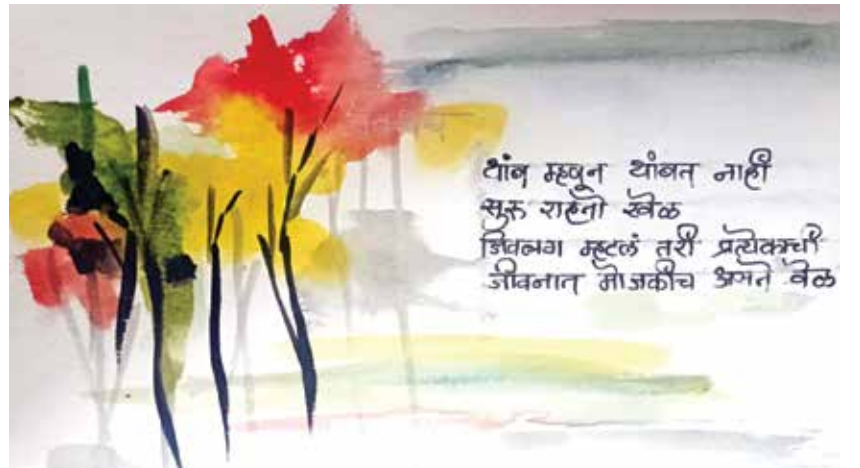 थांब म्हणून थांबत नाही
सुरू राहतो खेळ
जिवलग म्हटलं तरी प्रत्येकाची
जीवनात मोजकीच असते वेळ